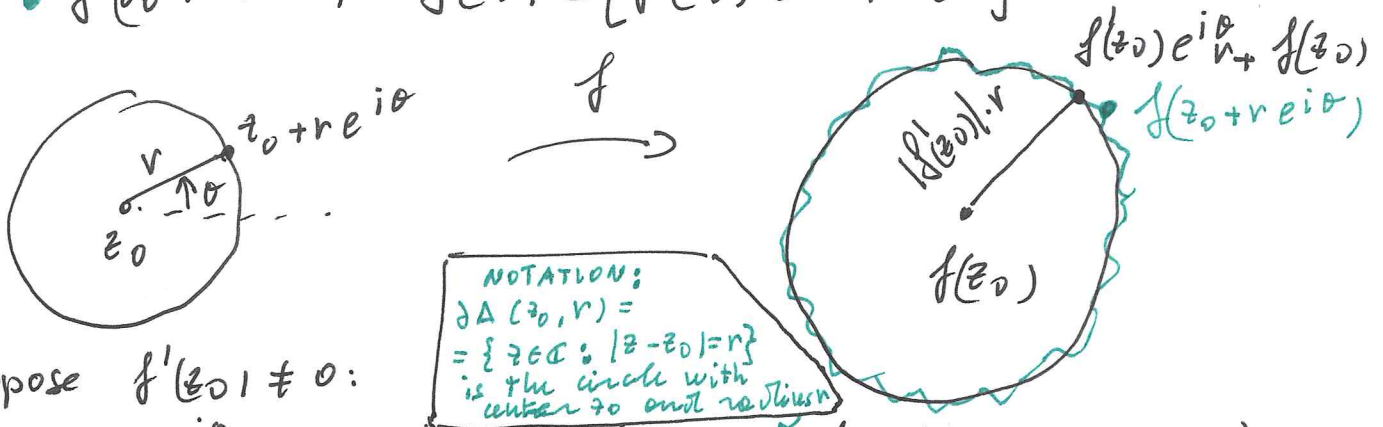 f
f'(z₀)e^{iθ}r + f(z₀)
f(z₀+re^{iθ})
z₀+re^{iθ}
r
θ
z₀
|f'(z₀)|·r
f(z₀)
NOTATION:
∂Δ(z₀,r) =
= {z∈ℂ: |z-z₀|=r}
is the circle with
center z₀ and radius r
pose f'(z₀) ≠ 0: